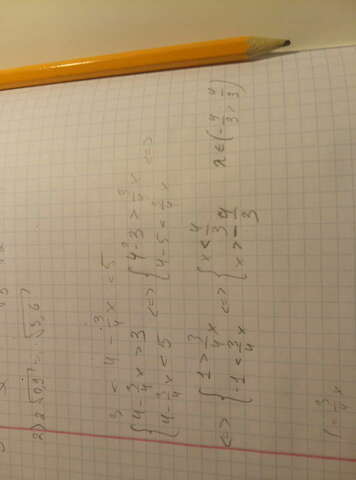 2) 2√0,9 … √3,6
3 < 4 - 3/4 x < 5
{ 4 - 3/4 x > 3
{ 4 - 3/4 x < 5
<=> { 4 - 3 > 3/4 x
{ 4 - 5 < 3/4 x <=>
<=> { 1 > 3/4 x
{ -1 < 3/4 x
<=> { x < 4/3
{ x > -4/3
x ∈ (-4/3; 4/3)
1 = 3/4 x